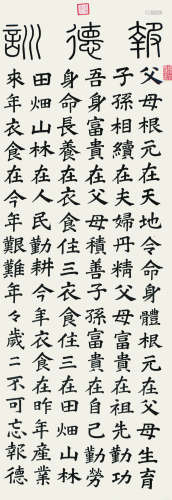 報德訓
父母根元在天地令命身體根元在父母生育
子孫相續在夫婦丹精父母富貴在祖先勤功
吾身富貴在父母積善子孫富貴在自己勤勞
身命長養在衣食住三衣食住三在田畑山林
田畑山林在人民勤耕今年衣食在昨年產業
來年衣食在今年艱難年々歲々不可忘報德